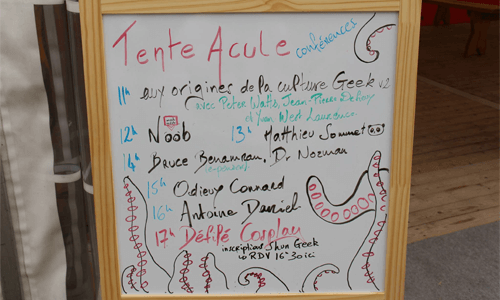 Tente Acule conférences
11h aux origines de la culture Geek v2
avec Peter Watts, Jean-Pierre Dehny
d'Yan West Laurence
12h Noob 13h Matthieu Sommet
14h Bruce Benamran, Dr Nozman
15h Odieux Connard
16h Antoine Daniel
17h Défilé Cosplay
inscriptions Shun Geek
RDV 16h30 ici